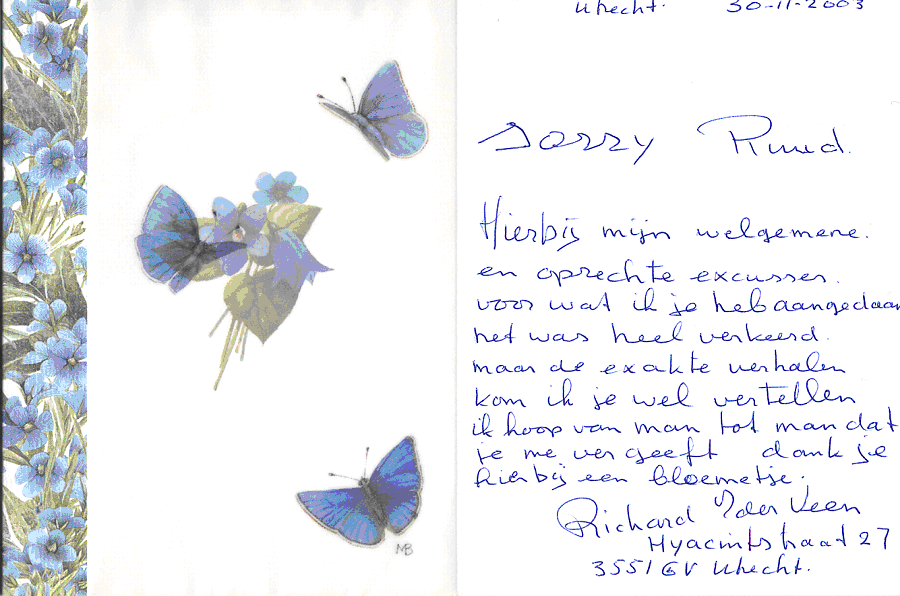 Utrecht. 30-11-2003
Sorry Ruud.
Hierbij mijn welgemene.
en oprechte excusses.
voor wat ik je heb aangedaan
het was heel verkeerd.
maar de exakte verhalen
kom ik je wel vertellen
ik hoop van man tot man dat
je me vergeeft dank je
hierbij een bloemetje.
Richard v der Veen
Hyacintstraat 27
3551 GV Utrecht.
MB